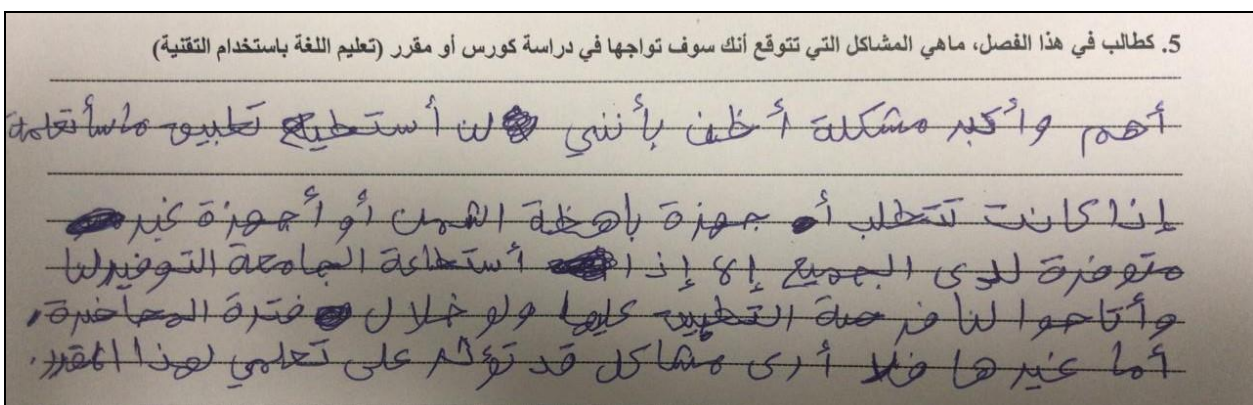 5. كطالب في هذا الفصل، ماهي المشاكل التي تتوقع أنك سوف تواجها في دراسة كورس أو مقرر (تعليم اللغة باستخدام التقنية)
أهم وأكبر مشكلة أظن بأنني لن أستطيع تطبيق ماسأتعلمه
إذا كانت تتطلب أجهزة باهظة الثمن أو أجهزة غير
متوفرة للدى الجميع إلا إذا أستطاعة الجامعة التوفير لنا
وأتاحوا لنا فرصة التطبيق عليها ولو خلال فترة المحاضرة،
أما غيرها فلا أرى مشاكل قد تؤثر على تعلمي لهذا المقرر.